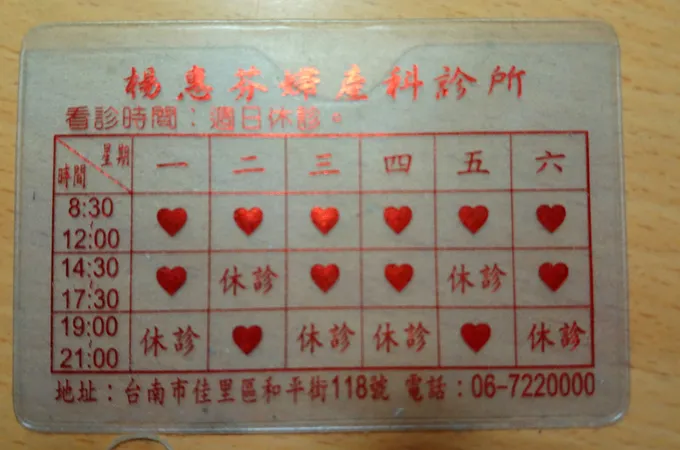 楊惠芬婦產科診所
看診時間：週日休診。
星期 時間 一 二 三 四 五 六
8:30~12:00 ♥ ♥ ♥ ♥ ♥ ♥
14:30~17:30 ♥ 休診 ♥ ♥ 休診 ♥
19:00~21:00 休診 ♥ 休診 休診 ♥ 休診
地址：台南市佳里區和平街118號 電話：06-7220000